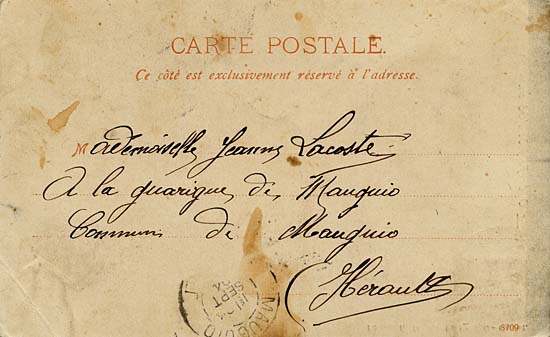 CARTE POSTALE.
Ce côté est exclusivement réservé à l'adresse.
Mademoiselle Jeanne Lacoste
A la guarigue de Mauguio
Commune de Mauguio
Hérault
MAUGUIO
SEPT
04
8709